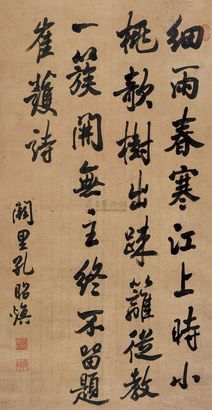 細雨春寒江上時小
桃欹樹出疎籬從教
一簇開無主終不留題
崔護詩
闕里孔昭煥